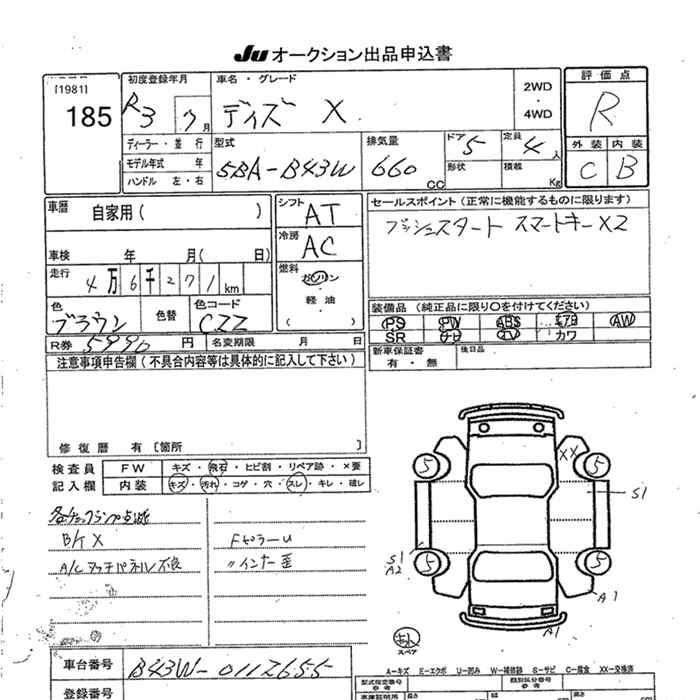 Ju オークション出品申込書
[1981]
185
初度登録年月
R3 7月
車名・グレード
デイズ X
2WD
・
4WD
評価点
R
ディーラー・並行
モデル年式 年
ハンドル 左・右
型式
5BA-B43W
排気量
660 cc
ドア
5
形状
定員
4人
積載
Kg
外装 内装
C B
車歴
自家用( )
車検 年 月( 日)
走行
4万6千271km
色
ブラウン
色替
色コード
CZZ
シフト
AT
冷房
AC
燃料
ガソリン
・
軽油
( )
セールスポイント(正常に機能するものに限ります)
プッシュスタート スマートキーX2
装備品(純正品に限り〇を付けてください)
PS PW ABS エアB AW
SR ナビ TV カワ
R券 5990円
名変期限 月 日
新車保証書
有・無
後日品
注意事項申告欄(不具合内容等は具体的に記入して下さい)
修復歴 有[箇所 ]
検査員
記入欄
FW キズ・飛石・ヒビ割・リペア跡・×要
内装 キズ・汚れ・コゲ・穴・スレ・キレ・破レ
各チェックランプ点滅
B/K X
A/C タッチパネル不良
FピラーU
〃インナー歪
5
5
5
5
XX
S1
S1
A2
A1
A1
スペア
A-キズ E-エクボ U-凹み W-補修跡 S-サビ C-腐食 XX-交換済
車台番号
B43W-0112655
登録番号
型式指定番号
参考
類別区分番号
参考